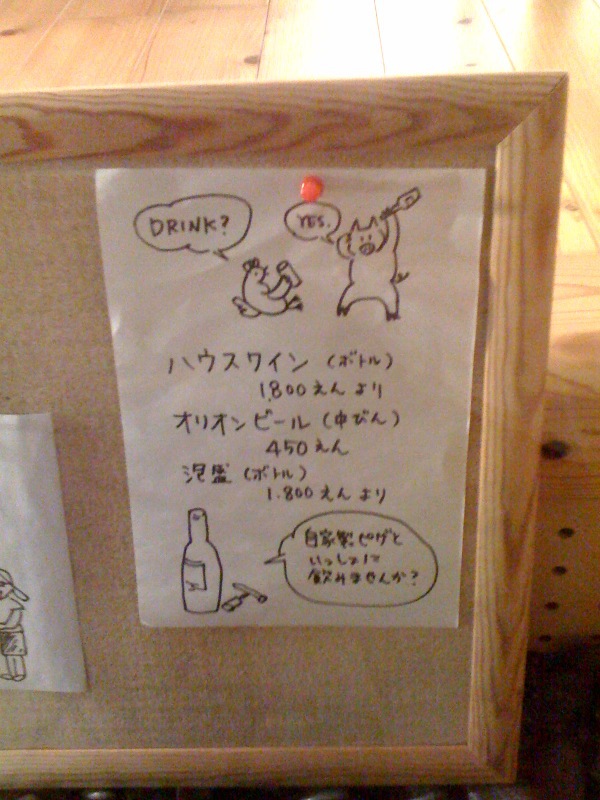 DRINK?
YES.
ハウスワイン（ボトル）
1,800えんより
オリオンビール（中びん）
450えん
泡盛（ボトル）
1.800えんより
自家製ピグと
いっしょに
飲みませんか?